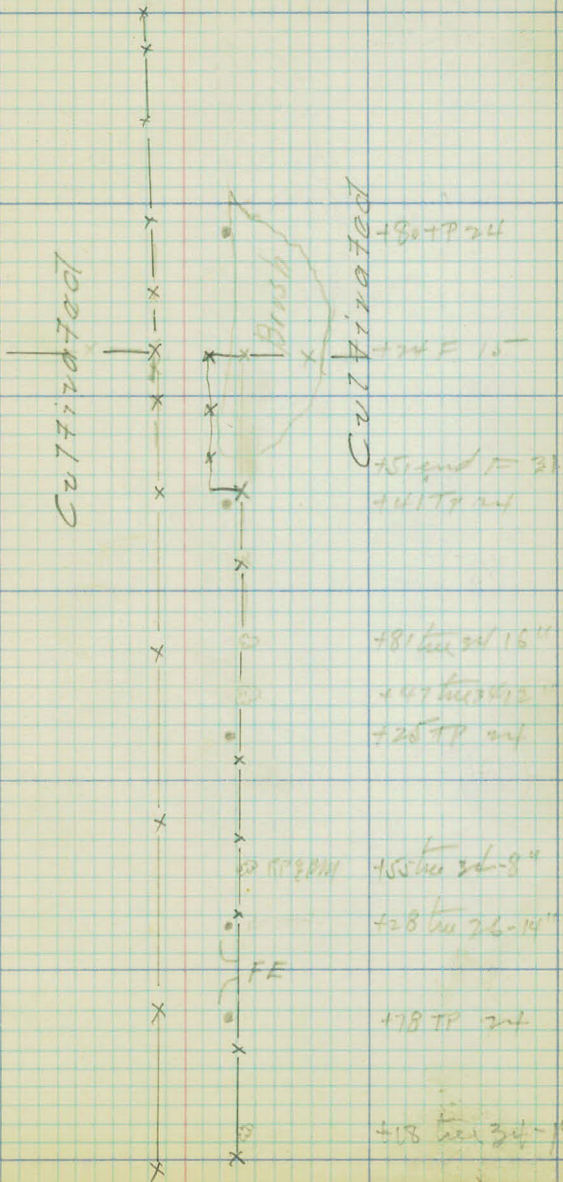 +80 TP 24
Cultivated
Brush
Cultivated
+24 F 15
+51 end F 31
+41 TP 24
+81 tree 24 16"
+47 tree 12"
+25 TP 24
RP & BM
+55 tree 24-8"
+28 tree 26-14"
FE
+78 TP 24
+18 tree 34-1